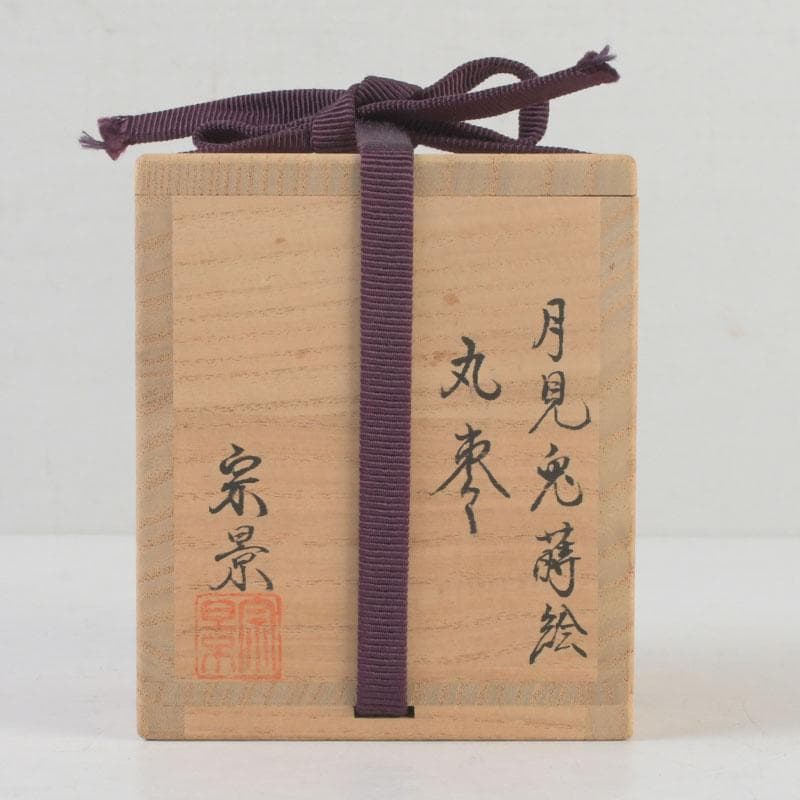 月見兎蒔絵
丸棗
宗景